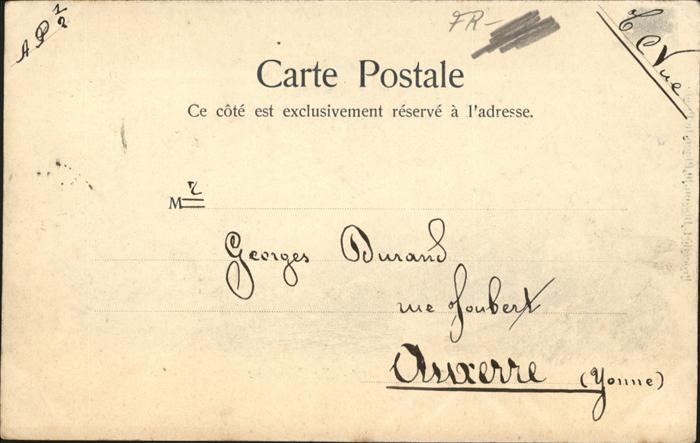 AP 1/2
FR-
TCVue
Carte Postale
Ce côté est exclusivement réservé à l'adresse.
Mr
Georges Durand
rue Joubert
Auxerre (Yonne)